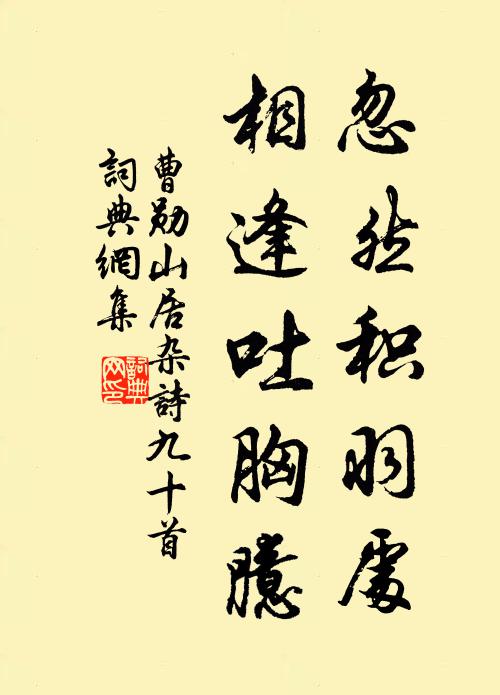 忽然积羽處
相逢吐胸臆
曹勋山居杂詩九十首
詞典網集
詞典
网印